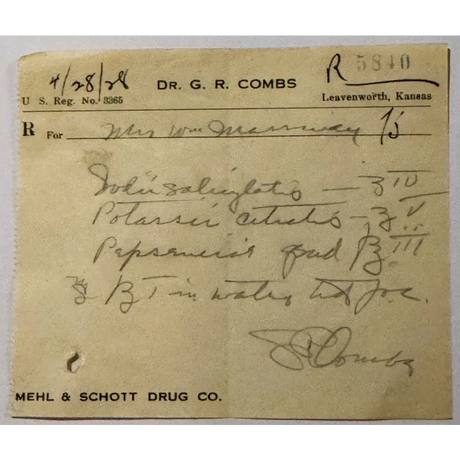 4/28/28 DR. G. R. COMBS R 5840
U. S. Reg. No. 3365 Leavenworth, Kansas
R For Mrs Wm
Sodii salicylatis — ʒ IV
Potassii citratis — ʒ V
Pepsencia qsad ℥ III
ʒ I in water t.i.d. p.c.
G R Combs
MEHL & SCHOTT DRUG CO.